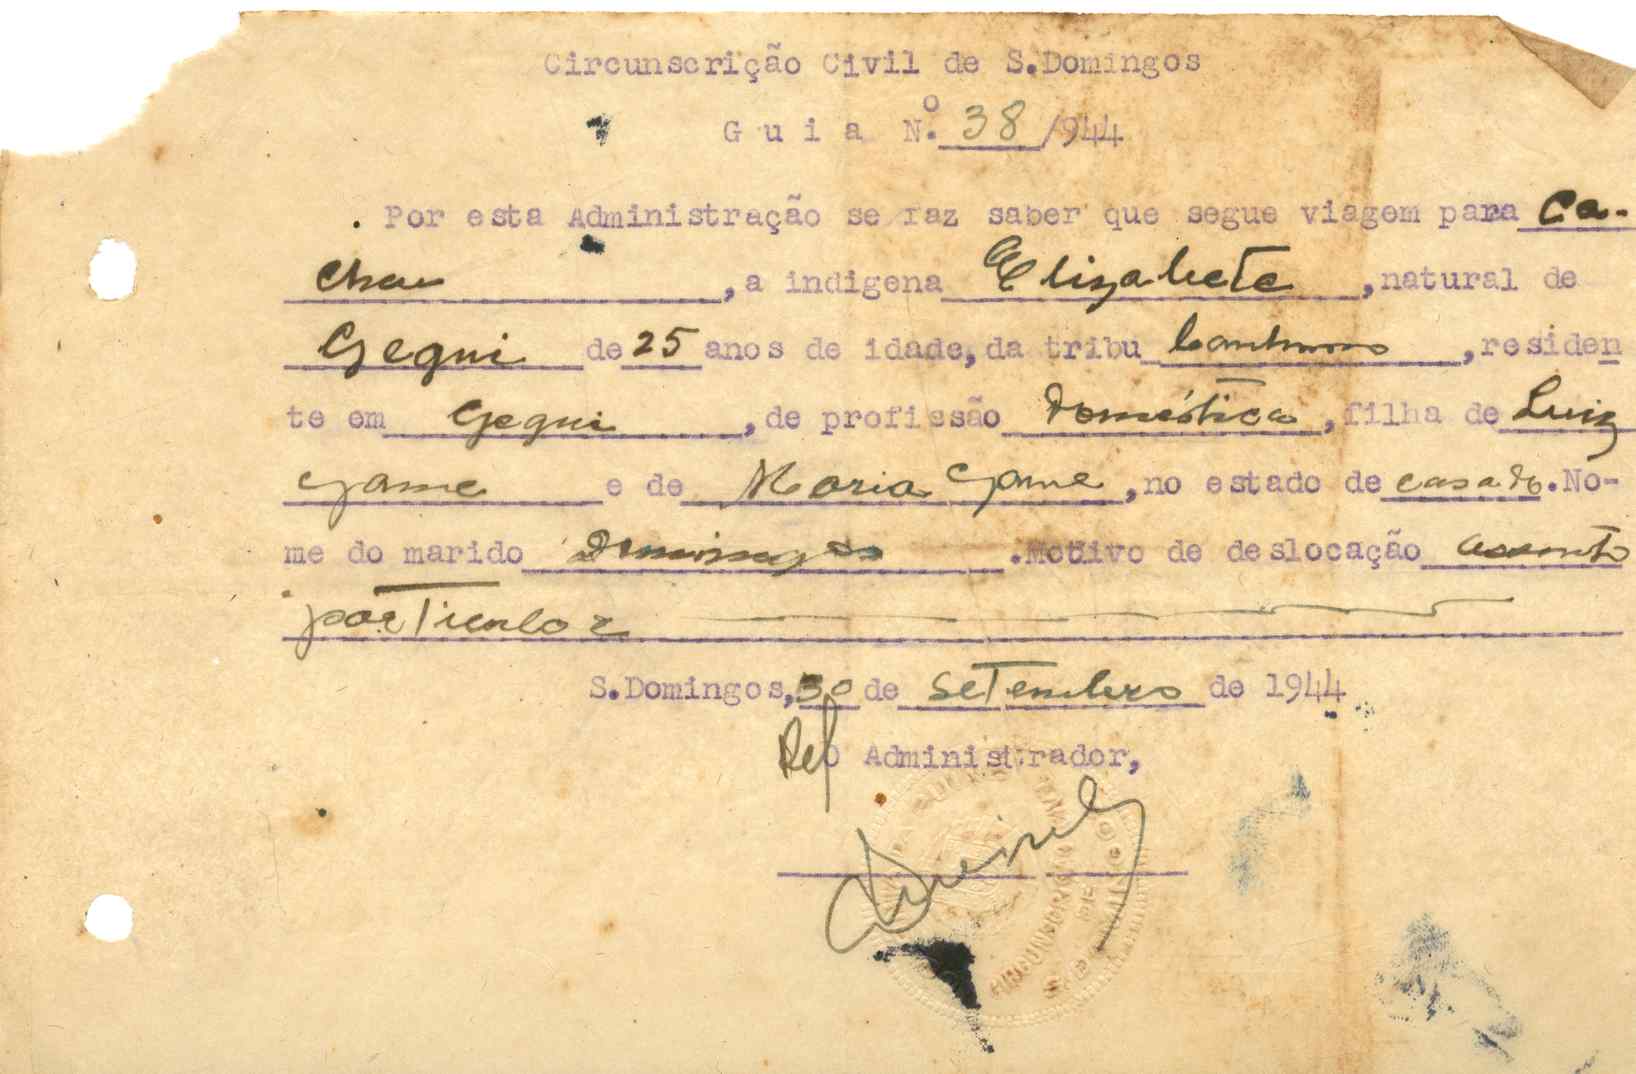 Circunscrição Civil de S.Domingos
G u i a N.º 38/944
Por esta Administração se faz saber que segue viagem para Ca-
cheu, a indigena Elizabete, natural de
Gegui de 25 anos de idade, da tribu, residen
te em Gegui, de profissão doméstica, filha de Luiz
Game e de Maria Game, no estado de casado. No-
me do marido Domingos. Motivo de deslocação assunto
particular
S.Domingos, 30 de Setembro de 1944
O Administrador,
CIRCUNSCRIÇÃO CIVIL DE S. DOMINGOS